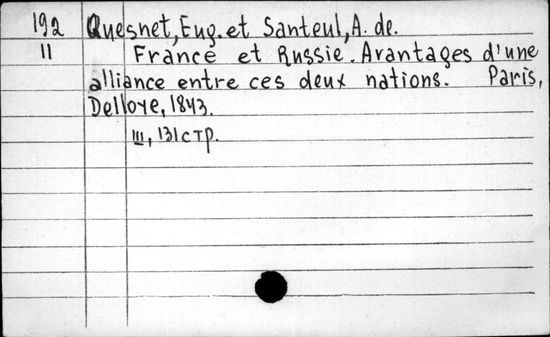 192 Quesnet, Eug. et Santeul, A. de.
11 France et Russie. Avantages d'une
alliance entre ces deux nations. Paris,
Delloye, 1843.
III, 131 стр.